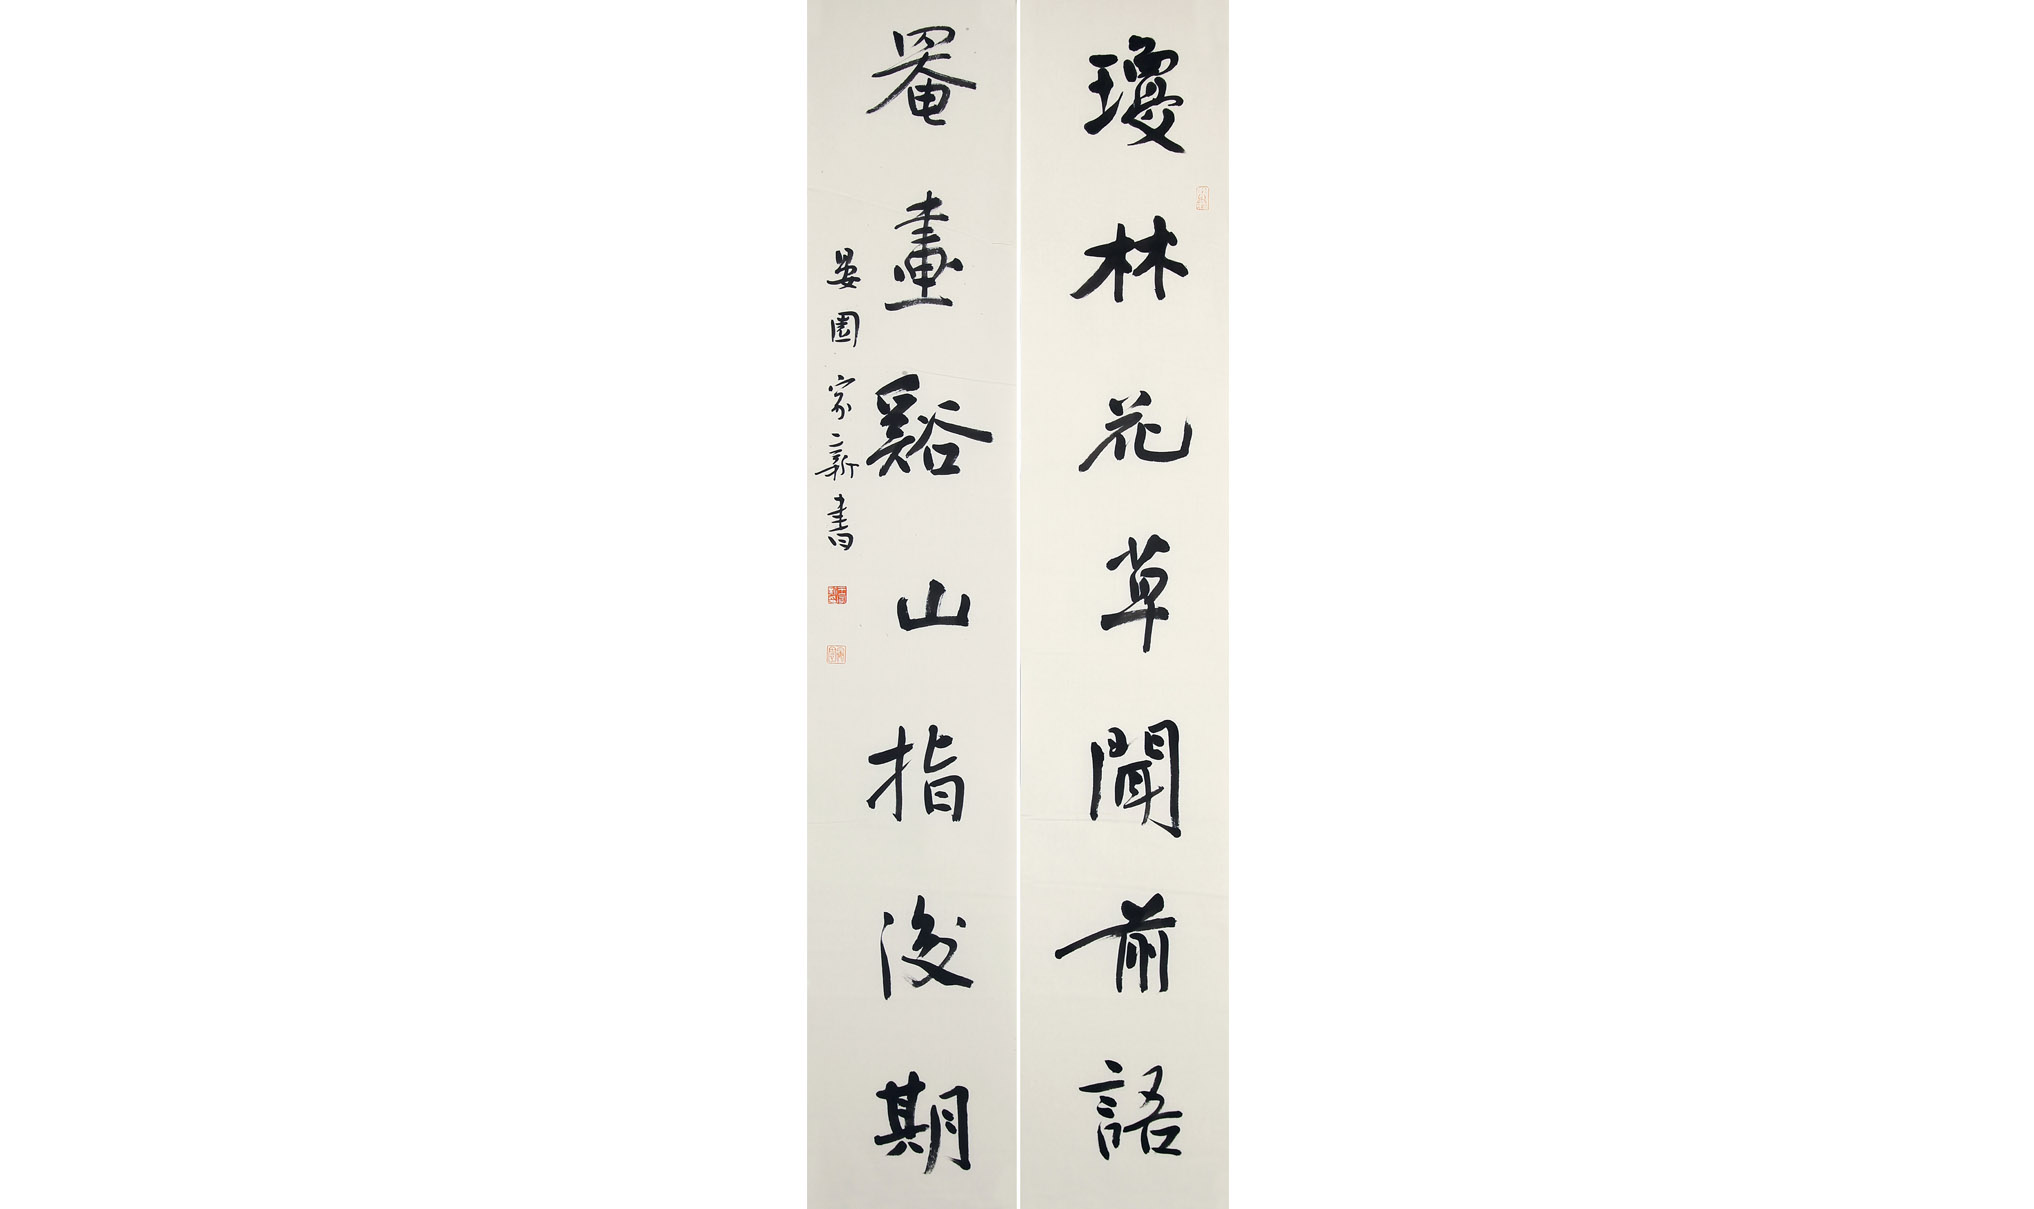 瓊林花草聞前語
罨畫谿山指後期
晏園家新書